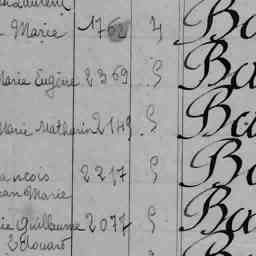 Marie 1762 4 Ba
Marie Eugène 2369 S Ba
Marie Mathurin 2149 S Ba
ançois 2217 S Ba
ean Marie
ie Guillaume 2077 S Ba
Edouard